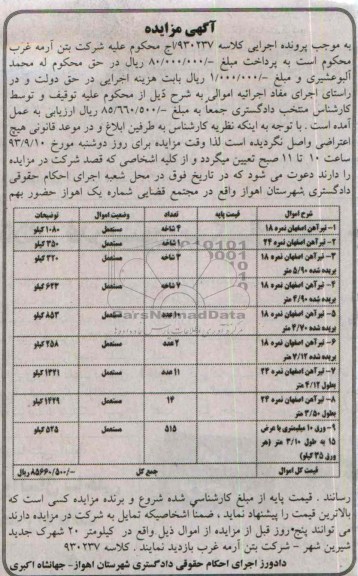 آگهی مزایده
به موجب پرونده اجرایی کلاسه ۹۳۰۲۳۷/اج محکوم علیه شرکت بتن آرمه غرب
محکوم است به پرداخت مبلغ -/۸۰/۰۰۰/۰۰۰ ریال در حق محکوم له محمد
آلبوعشیری و مبلغ -/۱/۰۰۰/۰۰۰ ریال بابت هزینه اجرایی در حق دولت و در
راستای اجرای مفاد اجرائیه اموالی به شرح ذیل از محکوم علیه توقیف و توسط
کارشناس منتخب دادگستری جمعاً به مبلغ -/۸۵/۶۶۰/۵۰۰ ریال ارزیابی به عمل
آمده است . با توجه به اینکه نظریه کارشناس به طرفین ابلاغ و در موعد قانونی هیچ
اعتراضی واصل نگردیده است لذا وقت مزایده برای روز دوشنبه مورخ ۹۳/۹/۱۰
ساعت ۱۰ تا ۱۱ صبح تعیین میگردد و از کلیه اشخاصی که قصد شرکت در مزایده
را دارند دعوت می شود که در تاریخ فوق در محل شعبه اجرای احکام حقوقی
دادگستری شهرستان اهواز واقع در مجتمع قضایی شماره یک اهواز حضور بهم
شرح اموال قیمت پایه تعداد وضعیت اموال توضیحات
۱- تیرآهن اصفهان نمره ۱۸ ۴ شاخه مستعمل ۱۰۸۰ کیلو
۲- تیرآهن اصفهان نمره ۲۴ ۱ شاخه مستعمل ۳۵۰ کیلو
۳- تیرآهن اصفهان نمره ۱۸ بریده شده ۵/۹۰ متر ۳ شاخه مستعمل ۳۲۰ کیلو
۴- تیرآهن اصفهان نمره ۱۸ بریده شده ۴/۹۰ متر ۷ شاخه مستعمل ۶۴۳ کیلو
۵- تیرآهن اصفهان نمره ۱۸ بریده شده ۴/۷۰ متر ۱۰ عدد مستعمل ۸۵۳ کیلو
۶- تیرآهن اصفهان نمره ۱۸ بریده شده ۷/۱۲ متر ۲ عدد مستعمل ۲۵۸ کیلو
۷- تیرآهن اصفهان نمره ۲۴ بطول ۴/۱۲ متر ۱۱ عدد مستعمل ۱۳۲۱ کیلو
۸- تیرآهن اصفهان نمره ۲۴ بطول ۳/۵۰ متر ۱۴ مستعمل ۱۴۲۹ کیلو
۹- ورق ۱۰ میلیمتری با عرض ۱۵ به طول ۳/۱۰ متر (هر ورق ۳۵ کیلو) ۵۱۵ مستعمل ۵۲۵ کیلو
قیمت کل اموال جمع کل -/۸۵۶۶۰/۵۰۰ ریال
رسانند . قیمت پایه از مبلغ کارشناسی شده شروع و برنده مزایده کسی است که
بالاترین قیمت را پیشنهاد نماید ، ضمناً اشخاصیکه تمایل به شرکت در مزایده دارند
می توانند پنج روز قبل از مزایده از اموال ذیل واقع در کیلومتر ۲۰ شهرک جدید
شیرین شهر - شرکت بتن آرمه غرب بازدید نمایند . کلاسه ۹۳۰۲۳۷
دادورز اجرای احکام حقوقی دادگستری شهرستان اهواز- جهانشاه اکبری